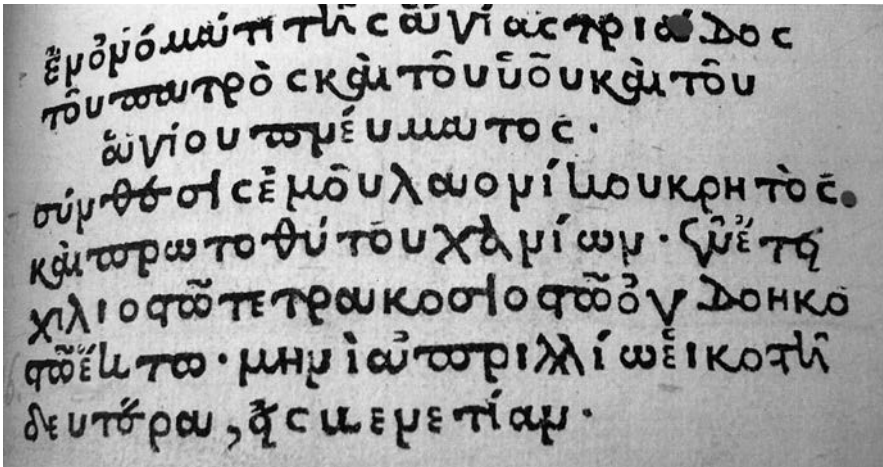 ἐν ὀνόματι τῆς ἁγίας τριάδος
τοῦ πατρὸς καὶ τοῦ ὑοῦ καὶ τοῦ
ἁγίου πνεύματος.
σύνθεσις ἐμοῦ λαονίκου κρητὸς.
καὶ πρωτοθύτου χανίων· ἐν ἔτει
χιλιοστῶ τετρακοσιοστῶ ὀγδοηκο
στῶ ἕκτω· μηνὶ ἀπριλλίω εἰκοστῆ
δευτέρα, εἰς βενετίαν·